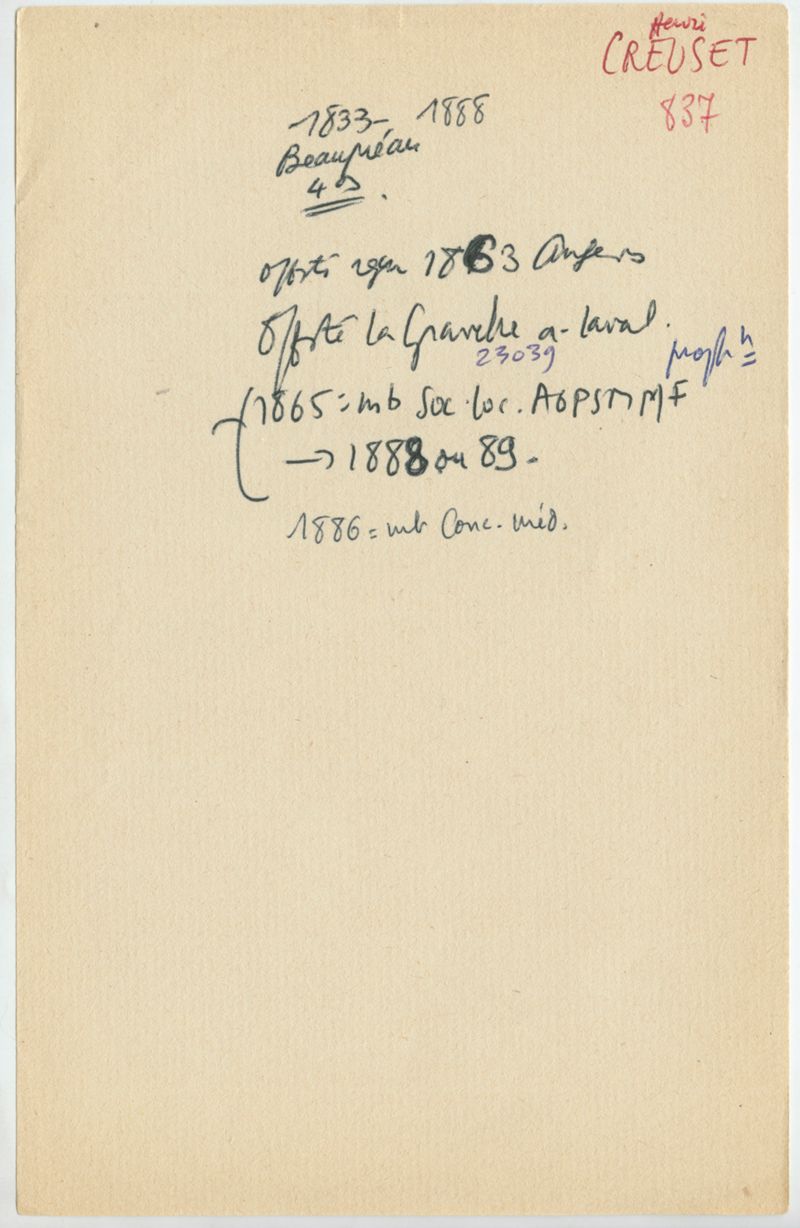 Henri
CREUSET
837
1833- 1888
Beaupréau
49.
offté reçu 1863 Angers
Offté la Gravelle a- Laval.
23039
1865 = mb Soc. loc. AGPSMMF
→ 1888 ou 89.
1886 = mb Conc. méd.